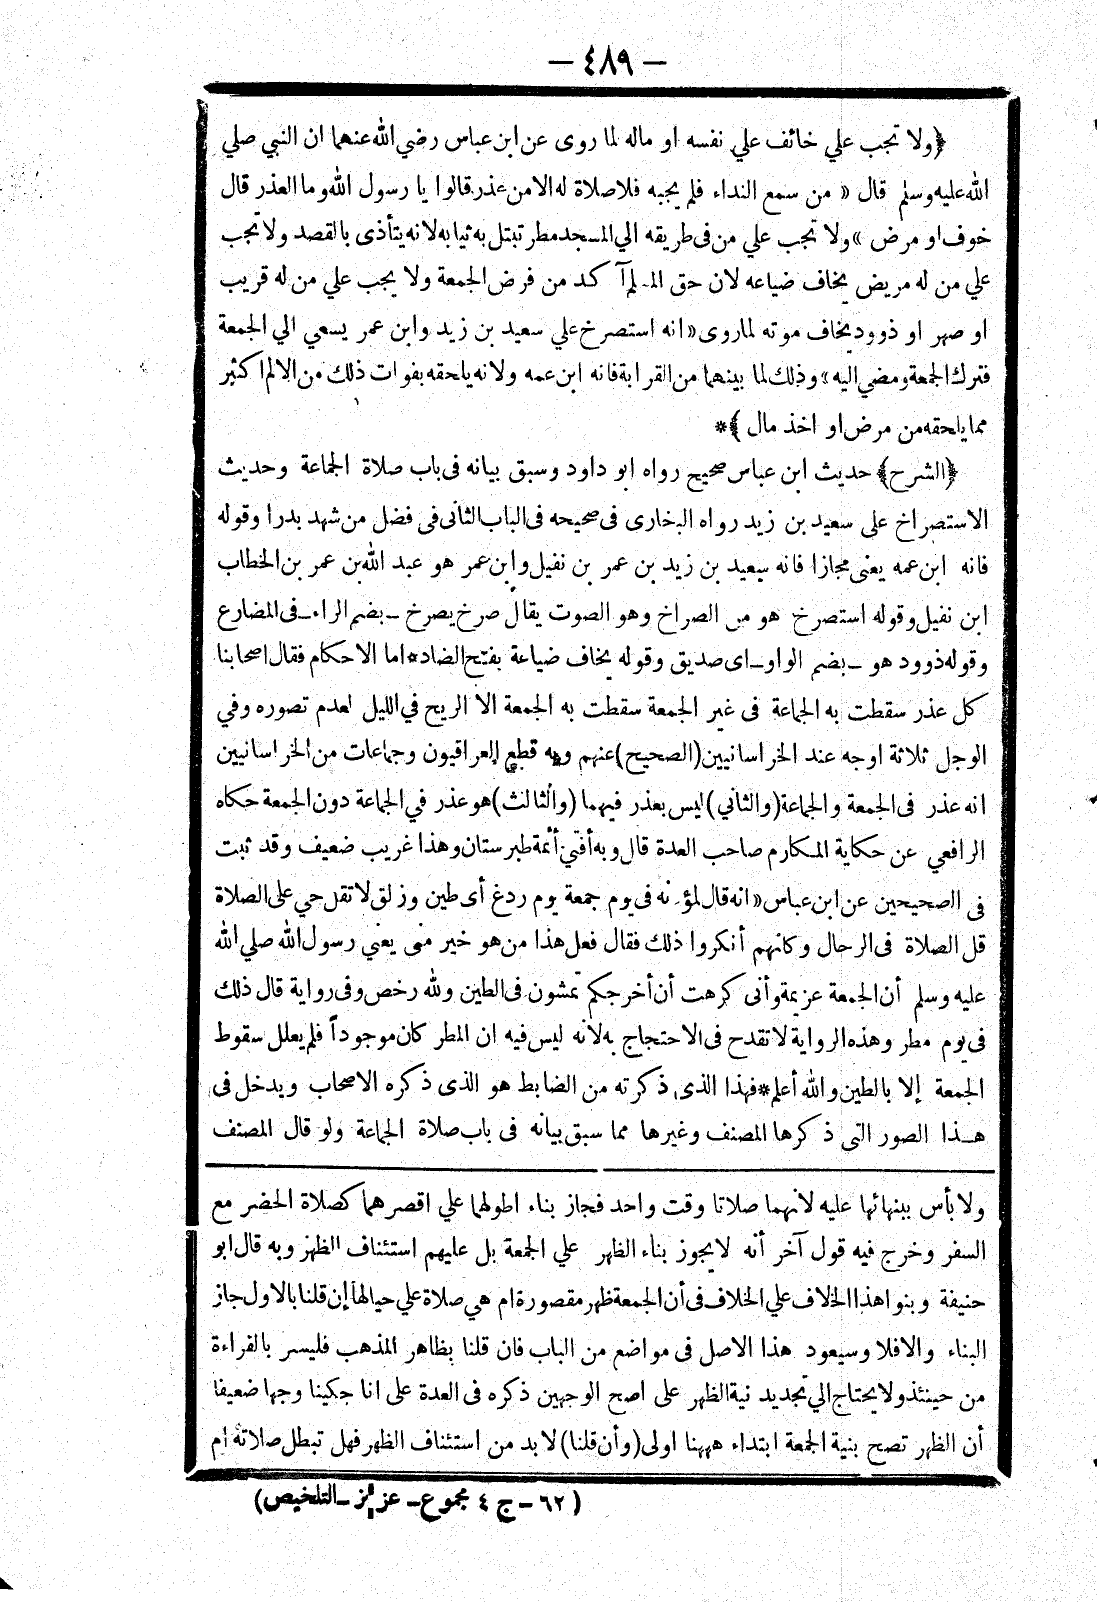 — ٤٨٩ —
﴿ولا تجب علي خائف علي نفسه او ماله لما روى عن ابن عباس رضي الله عنهما ان النبي صلي
الله عليه وسلم قال « من سمع النداء فلم يجبه فلا صلاة له الا من عذر قالوا يا رسول الله وما العذر قال
خوف او مرض » ولا تجب علي من فى طريقه الي المسجد مطر تبتل به ثيابه لانه يتأذى بالقصد ولا تجب
علي من له مريض يخاف ضياعه لان حق المسلم آكد من فرض الجمعة ولا يجب علي من له قريب
او صهر او ذو ود يخاف موته لما روى « انه استصرخ علي سعيد بن زيد وابن عمر يسعي الي الجمعة
فترك الجمعة ومضي اليه » وذلك لما بينهما من القرابة فانه ابن عمه ولانه يلحقه بفوات ذلك من الالم اكثر
مما يلحقه من مرض او اخذ مال ﴾*
﴿الشرح﴾ حديث ابن عباس صحيح رواه ابو داود وسبق بيانه فى باب صلاة الجماعة وحديث
الاستصراخ على سعيد بن زيد رواه البخارى فى صحيحه فى الباب الثانى فى فضل من شهد بدرا وقوله
فانه ابن عمه يعنى مجازا فانه سعيد بن زيد بن عمر بن نفيل وابن عمر هو عبد الله بن عمر بن الخطاب
ابن نفيل وقوله استصرخ هو من الصراخ وهو الصوت يقال صرخ يصرخ ـ بضم الراء ـ فى المضارع
وقوله ذو ود هو ـ بضم الواو ـ اى صديق وقوله يخاف ضياعة بفتح الضاد* اما الاحكام فقال اصحابنا
كل عذر سقطت به الجماعة فى غير الجمعة سقطت به الجمعة الا الريح في الليل لعدم تصوره وفي
الوحل ثلاثة اوجه عند الخراسانيين (الصحيح) عنهم وبه قطع العراقيون وجماعات من الخراسانيين
انه عذر فى الجمعة والجماعة (والثاني) ليس بعذر فيهما (والثالث) هو عذر في الجماعة دون الجمعة حكاه
الرافعي عن حكاية المكارم صاحب العدة قال وبه أفتى أئمة طبرستان وهذا غريب ضعيف وقد ثبت
فى الصحيحين عن ابن عباس « انه قال لمؤذنه فى يوم جمعة يوم ردغ أى طين وزلق لا تقل حي على الصلاة
قل الصلاة فى الرحال وكانهم أنكروا ذلك فقال فعل هذا من هو خير منى يعني رسول الله صلي الله
عليه وسلم أن الجمعة عزيمة وأنى كرهت أن أخرجكم تمشون فى الطين ولله رخص وفى رواية قال ذلك
فى يوم مطر وهذه الرواية لا تقدح فى الاحتجاج به لانه ليس فيه ان المطر كان موجوداً فلم يعلل سقوط
الجمعة إلا بالطين والله أعلم* فهذا الذى ذكرته من الضابط هو الذى ذكره الاصحاب ويدخل فى
هـذا الصور التى ذكرها المصنف وغيرها مما سبق بيانه فى باب صلاة الجماعة ولو قال المصنف
ولا بأس ببنائها عليه لانهما صلاتا وقت واحد فجاز بناء اطولهما علي اقصرهما كصلاة الحضر مع
السفر وخرج فيه قول آخر أنه لا يجوز بناء الظهر علي الجمعة بل عليهم استئناف الظهر وبه قال ابو
حنيفة وبنوا هذا الخلاف علي الخلاف فى أن الجمعة ظهر مقصورة ام هي صلاة علي حيالها إن قلنا بالاول جاز
البناء والا فلا وسيعود هذا الاصل فى مواضع من الباب فان قلنا بظاهر المذهب فليسر بالقراءة
من حينئذ ولا يحتاج الي تجديد نية الظهر على اصح الوجهين ذكره فى العدة على انا حكينا وجها ضعيفا
أن الظهر تصح بنية الجمعة ابتداء ههنا اولى (وأن قلنا) لا بد من استئناف الظهر فهل تبطل صلاته ام
( ٦٢ – ج ٤ مجموع – عزيز – التلخيص)